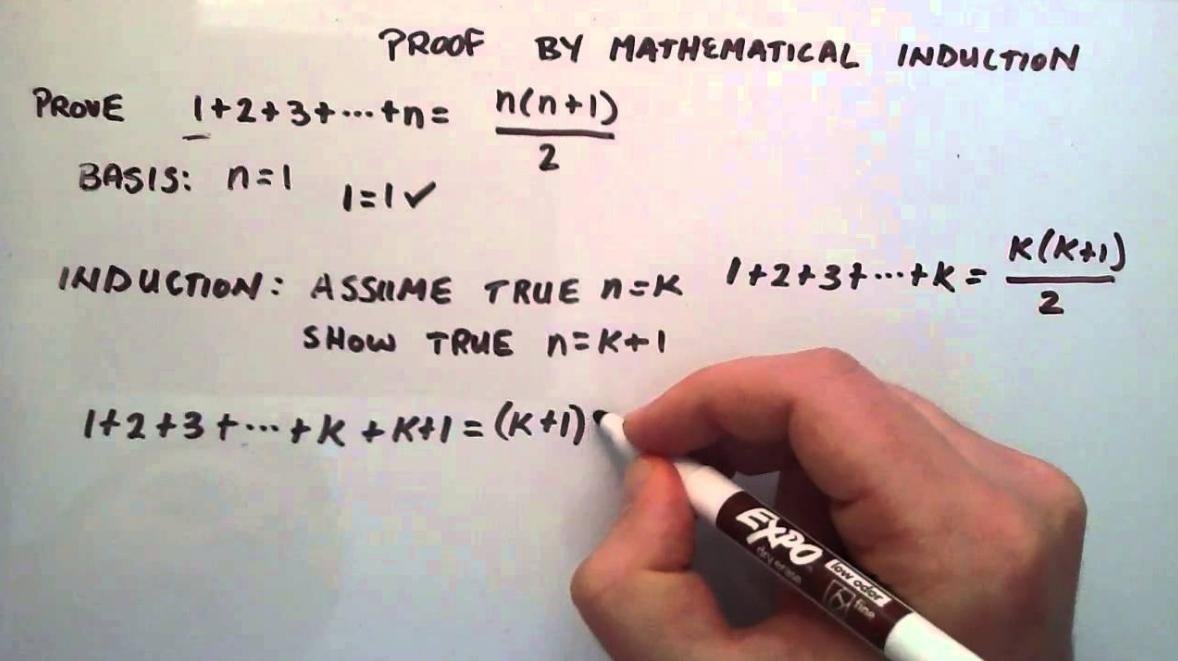 PROOF BY MATHEMATICAL INDUCTION
PROVE 1+2+3+···+n= n(n+1)/2
BASIS: n=1 1=1✓
INDUCTION: ASSUME TRUE n=K 1+2+3+···+K= K(K+1)/2
SHOW TRUE n=K+1
1+2+3+···+K+K+1=(K+1)
EXPO
dry erase
low odor
fine